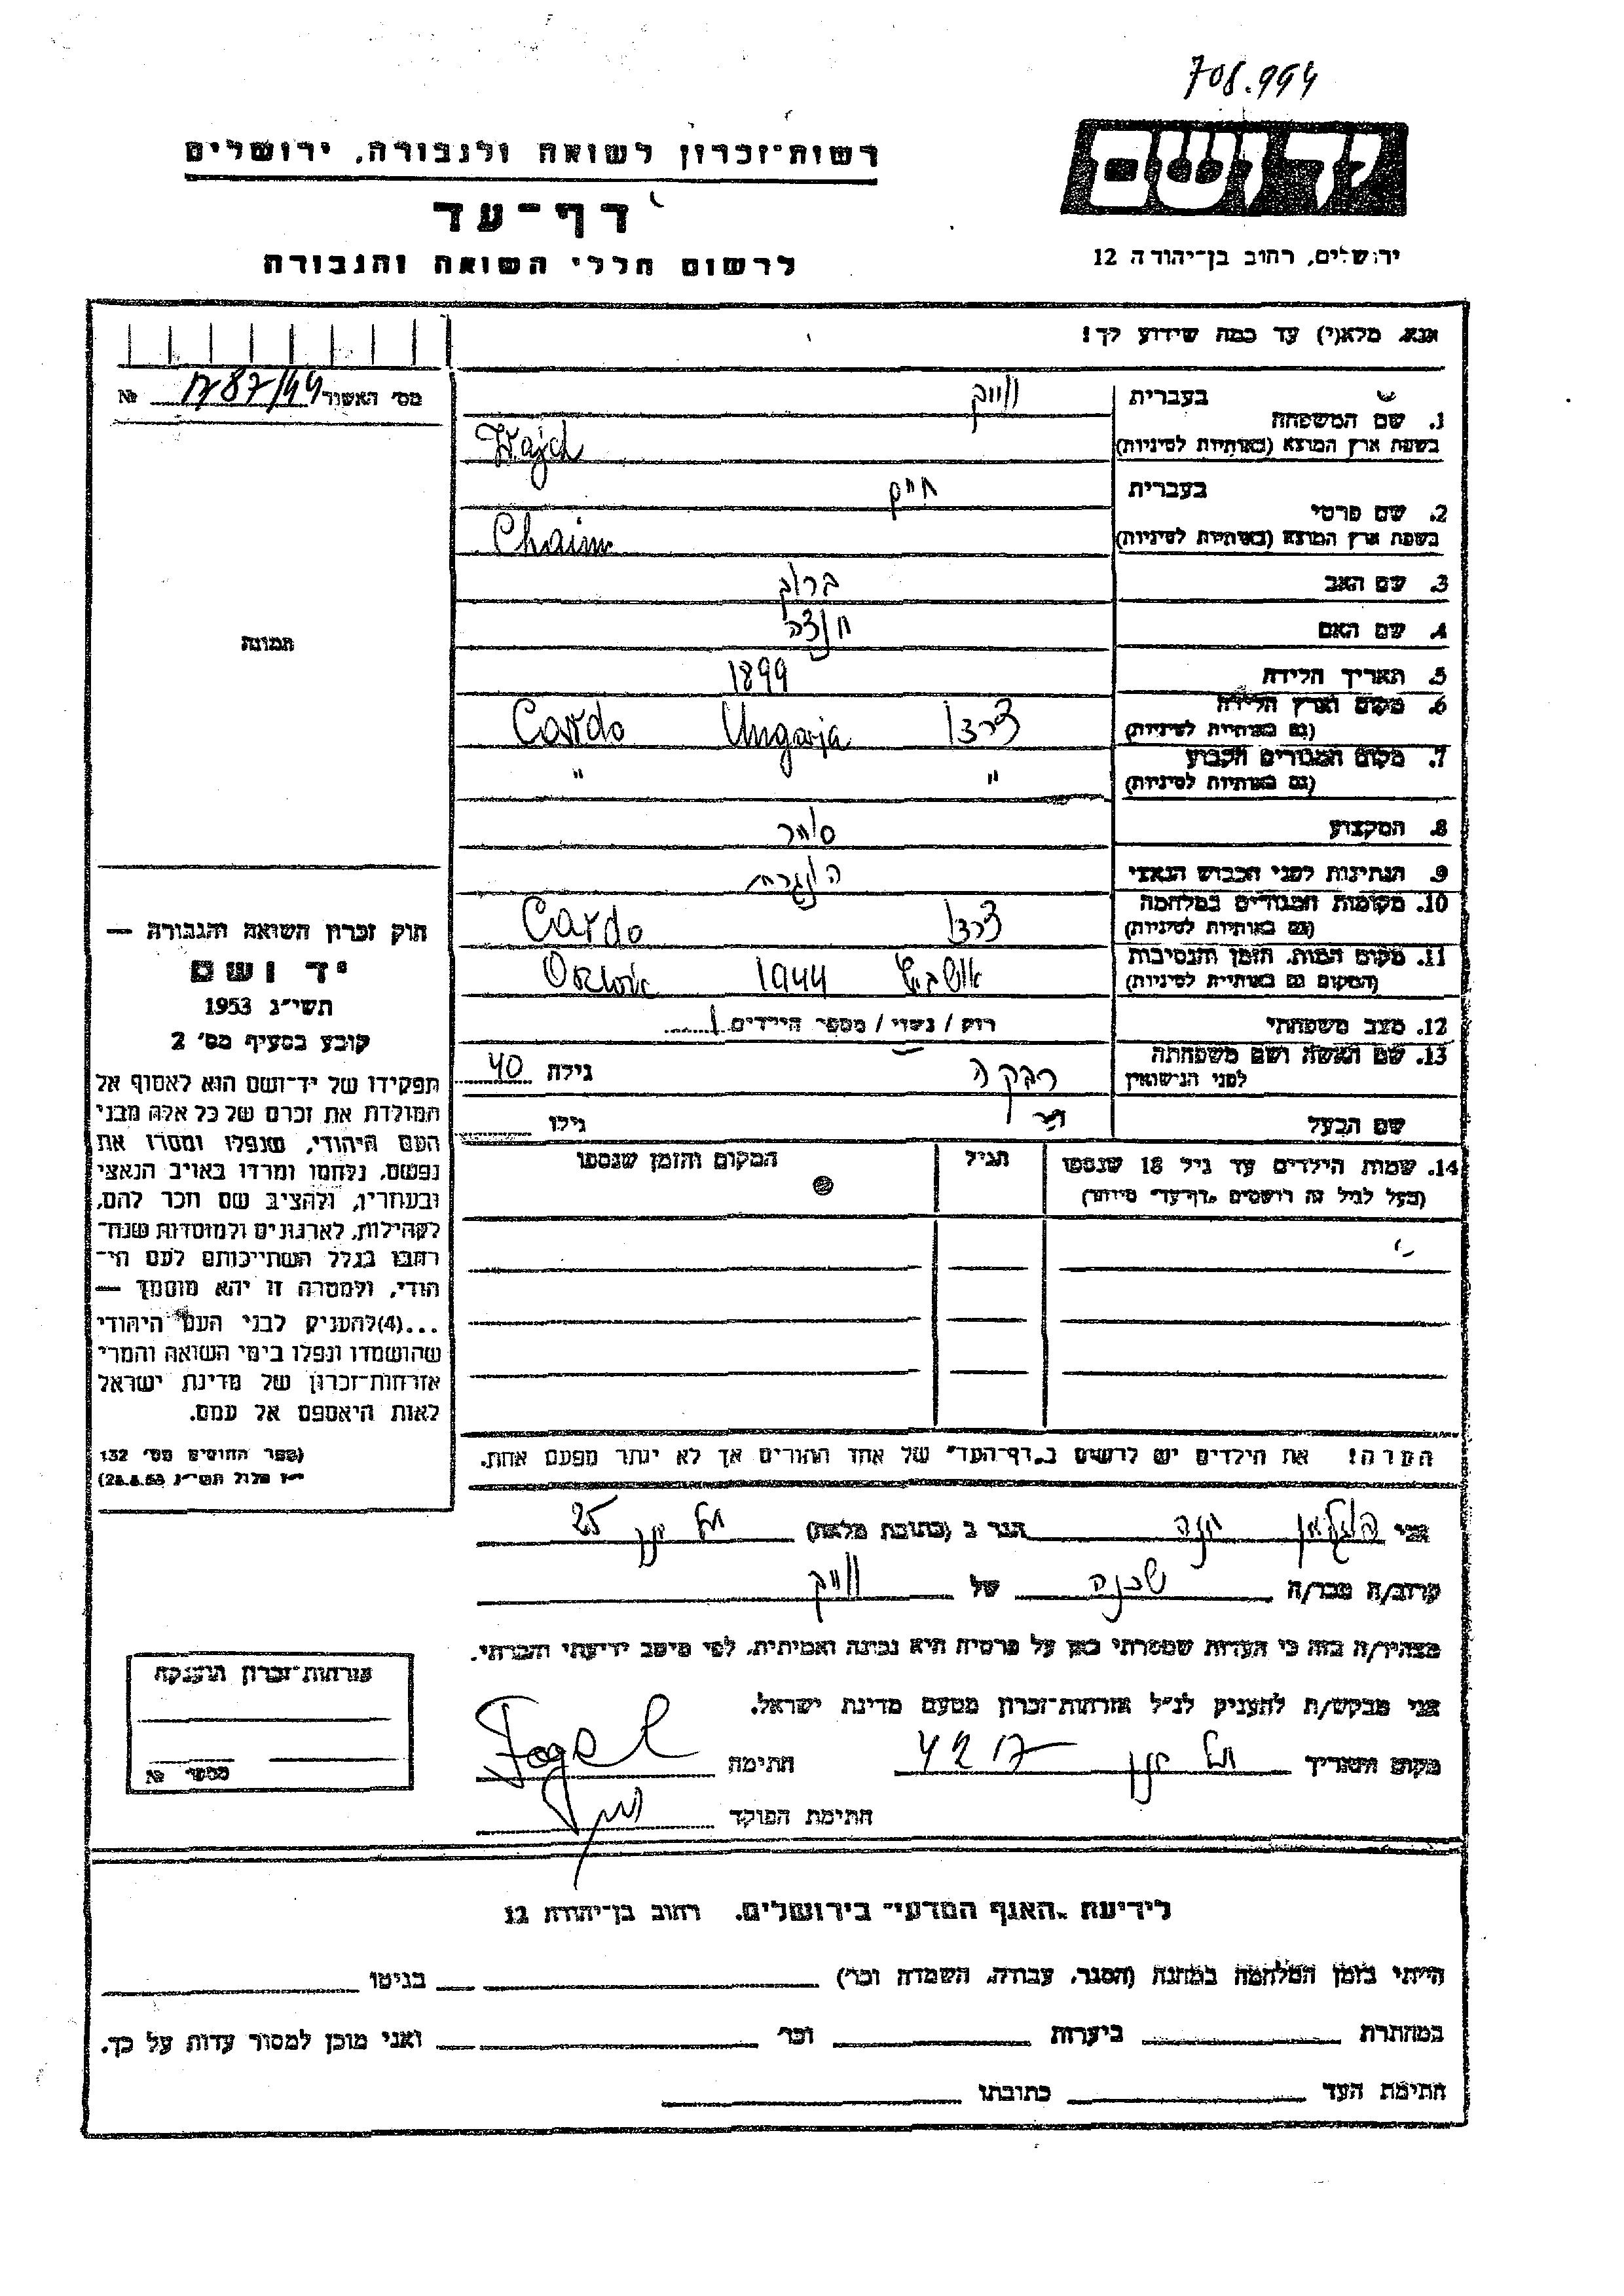 708.994
רשות־זכרון לשואה ולגבורה, ירושלים
דף־עד
לרשום חללי השואה והגבורה
יד ושם
ירושלים, רחוב בן־יהודה 12
אנא מלא(י) עד כמה שידוע לך!
מס׳ האשור 1787/44 №
תמונה
1. שם המשפחה
בעברית
בשפת ארץ המוצא (באותיות לטיניות) Wajch
2. שם פרטי
בעברית חיים
בשפת ארץ המוצא (באותיות לטיניות) Chaim
3. שם האב ברוך
4. שם האם
5. תאריך הלידה 1899
6. מקום וארץ הלידה
(גם באותיות לטיניות) Ungarja Cardo
7. מקום המגורים הקבוע
(גם באותיות לטיניות) " "
8. המקצוע סוחר
9. הנתינות לפני הכבוש הנאצי הונגרית
10. מקומות המגורים במלחמה
(גם באותיות לטיניות) Cardo
11. מקום המות, הזמן והנסיבות
(המקום גם באותיות לטיניות) 1944
12. מצב משפחתי רווק / נשוי / מספר הילדים 1
13. שם האשה ושם משפחתה
לפני הנישואין רבקה גילה 40
שם הבעל גילו
14. שמות הילדים עד גיל 18 שנספו
(מעל לגיל זה רושמים "דף־עד" מיוחד)
הגיל
המקום והזמן שנספו
הערה! את הילדים יש לרשום ב"דף־העד" של אחד ההורים אך לא יותר מפעם אחת.
חוק זכרון השואה והגבורה —
יד ושם
תשי״ג 1953
קובע בסעיף מס׳ 2
תפקידו של יד־ושם הוא לאסוף אל
המולדת את זכרם של כל אלה מבני
העם היהודי, שנפלו ומסרו את
נפשם, נלחמו ומרדו באויב הנאצי
ובעוזריו, ולהציב שם וזכר להם,
לקהילות, לארגונים ולמוסדות שנח־
רבו בגלל השתייכותם לעם הי־
הודי, ולמטרה זו יהא מוסמך —
...(4) להעניק לבני העם היהודי
שהושמדו ונפלו בימי השואה והמרי
אזרחות־זכרון של מדינת ישראל
לאות היאספם אל עמם.
(ספר החוקים מס׳ 132
י״ז אלול תשי״ג 28.8.53)
אני חנה הגר ב (כתובת מלאה) 25
קרוב/ה מכר/ה שכנה של
מצהיר/ה בזה כי העדות שמסרתי כאן על פרטיה היא נכונה ואמיתית, לפי מיטב ידיעתי והכרתי.
אני מבקש/ת להעניק לנ״ל אזרחות־זכרון מטעם מדינת ישראל.
מקום ותאריך חתימה Fogel
חתימת הפוקד
אזרחות־זכרון הוענקה
מספר №
לידיעת "האגף המדעי" בירושלים, רחוב בן־יהודה 12
הייתי בזמן המלחמה במחנה (הסגר, עבודה, השמדה וכו׳) בגיטו
במחתרת ביערות וכו׳ ואני מוכן למסור עדות על כך.
חתימת העד כתובתו